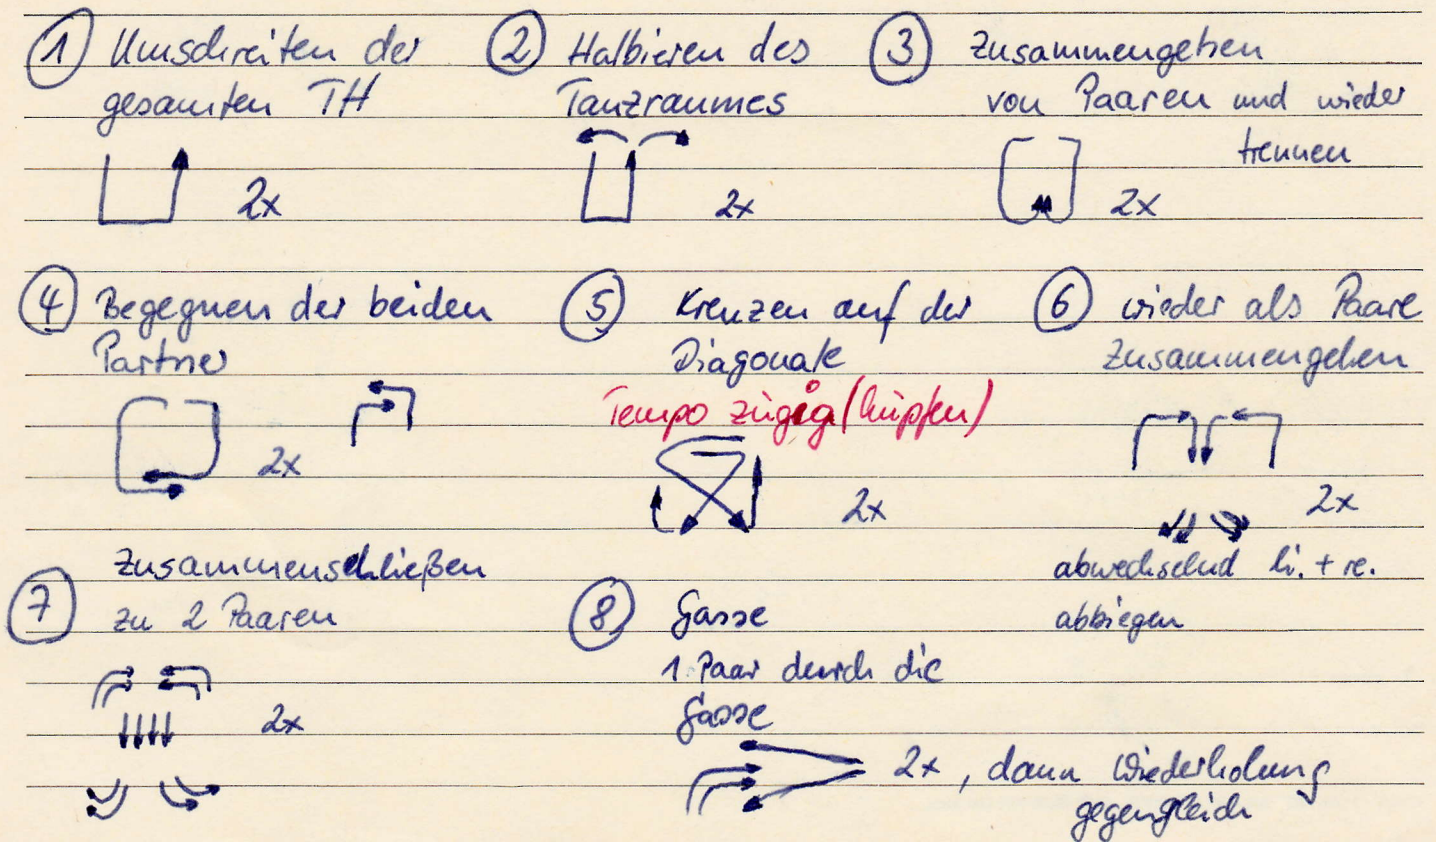 ① Umschreiten der
gesamten TH
2x
② Halbieren des
Tanzraumes
2x
③ Zusammengehen
von Paaren und wieder
trennen
2x
④ Begegnen der beiden
Partner
2x
⑤ Kreuzen auf der
Diagonale
Tempo zügig (hüpfen)
2x
⑥ wieder als Paare
Zusammengehen
2x
abwechselnd li. + re.
abbiegen
⑦ Zusammenschließen
zu 2 Paaren
2x
⑧ Gasse
1. Paar durch die
Gasse
2x, dann Wiederholung
gegengleich